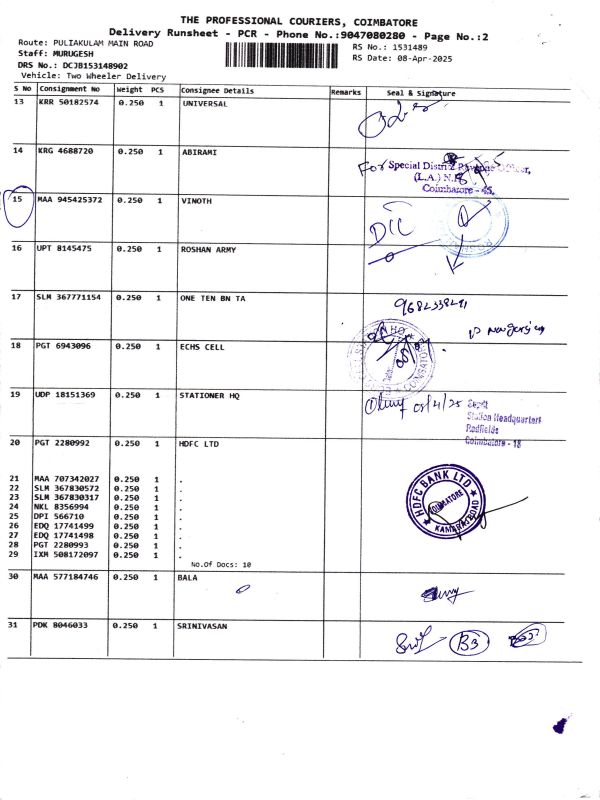 THE PROFESSIONAL COURIERS, COIMBATORE
Delivery Runsheet - PCR - Phone No.:9047080280 - Page No.:2
Route: PULIAKULAM MAIN ROAD
RS No.: 1531489
Staff: MURUGESH
RS Date: 08-Apr-2025
DRS No.: DCJB153148902
Vehicle: Two Wheeler Delivery
S No Consignment No Weight PCS Consignee Details Remarks Seal & Signature
13 KRR 50182574 0.250 1 UNIVERSAL
14 KRG 4688720 0.250 1 ABIRAMI
For Special District Revenue Officer,
(L.A.) N.H.
Coimbatore - 45.
15 MAA 945425372 0.250 1 VINOTH
DIC
16 UPT 8145475 0.250 1 ROSHAN ARMY
17 SLM 367771154 0.250 1 ONE TEN BN TA
18 PGT 6943096 0.250 1 ECHS CELL
19 UDP 18151369 0.250 1 STATIONER HQ
08/4/25
Station Headquarters
Redfields
Coimbatore - 18
20 PGT 2280992 0.250 1 HDFC LTD
HDFC BANK LTD
COIMBATORE
KAMARAJ ROAD
21 MAA 707342027 0.250 1 .
22 SLM 367830572 0.250 1 .
23 SLM 367830317 0.250 1 .
24 NKL 8356994 0.250 1 .
25 DPI 566710 0.250 1 .
26 EDQ 17741499 0.250 1 .
27 EDQ 17741498 0.250 1 .
28 PGT 2280993 0.250 1 .
29 IXM 508172097 0.250 1 .
No.Of Docs: 10
30 MAA 577184746 0.250 1 BALA
31 PDK 8046033 0.250 1 SRINIVASAN
B3